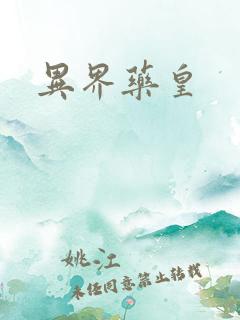 異界藥皇
姚江
未经同意禁止转载